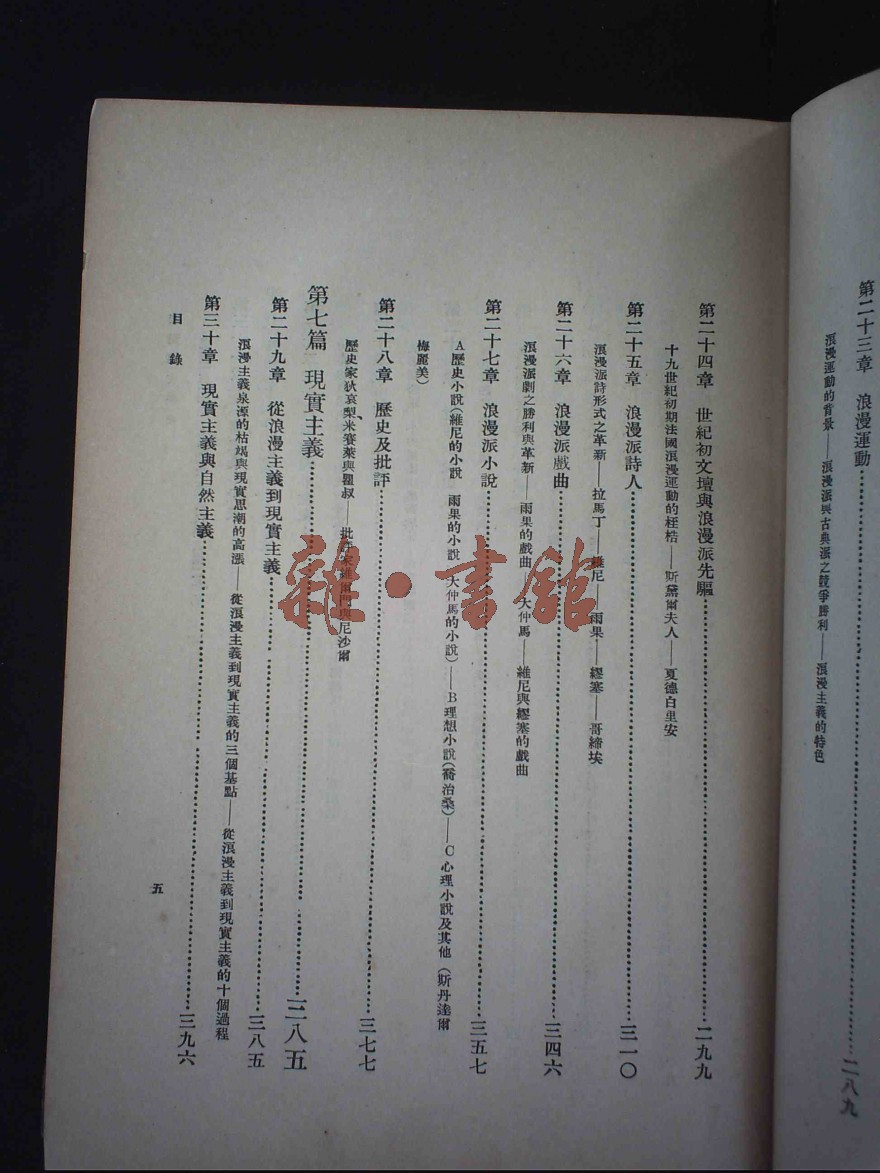 第二十三章 浪漫運動…………二八九
浪漫運動的背景——浪漫派與古典派之競爭勝利——浪漫主義的特色
第二十四章 世紀初文壇與浪漫派先驅…………二九九
十九世紀初期法國浪漫運動的桎梏——斯黛爾夫人——夏德白里安
第二十五章 浪漫派詩人…………三一〇
浪漫派詩形式之革新——拉馬丁——維尼——雨果——繆塞——哥締埃
第二十六章 浪漫派戲曲…………三四六
浪漫派劇之勝利與革新——雨果的戲曲 大仲馬——維尼與繆塞的戲曲
第二十七章 浪漫派小說…………三五七
A歷史小說(維尼的小說 雨果的小說 大仲馬的小說)——B理想小說(喬治桑)——C心理小說及其他(斯丹達爾
梅麗美)
第二十八章 歷史及批評…………三七七
歷史家狄哀梨、米賽萊與瞿叔——批評家維爾門與尼沙爾
第七篇 現實主義…………三八五
第二十九章 從浪漫主義到現實主義…………三八五
浪漫主義泉源的枯竭與現實思潮的高漲——從浪漫主義到現實主義的三個基點——從浪漫主義到現實主義的十個過程
第三十章 現實主義與自然主義…………三九六
目錄
五
雜·書館